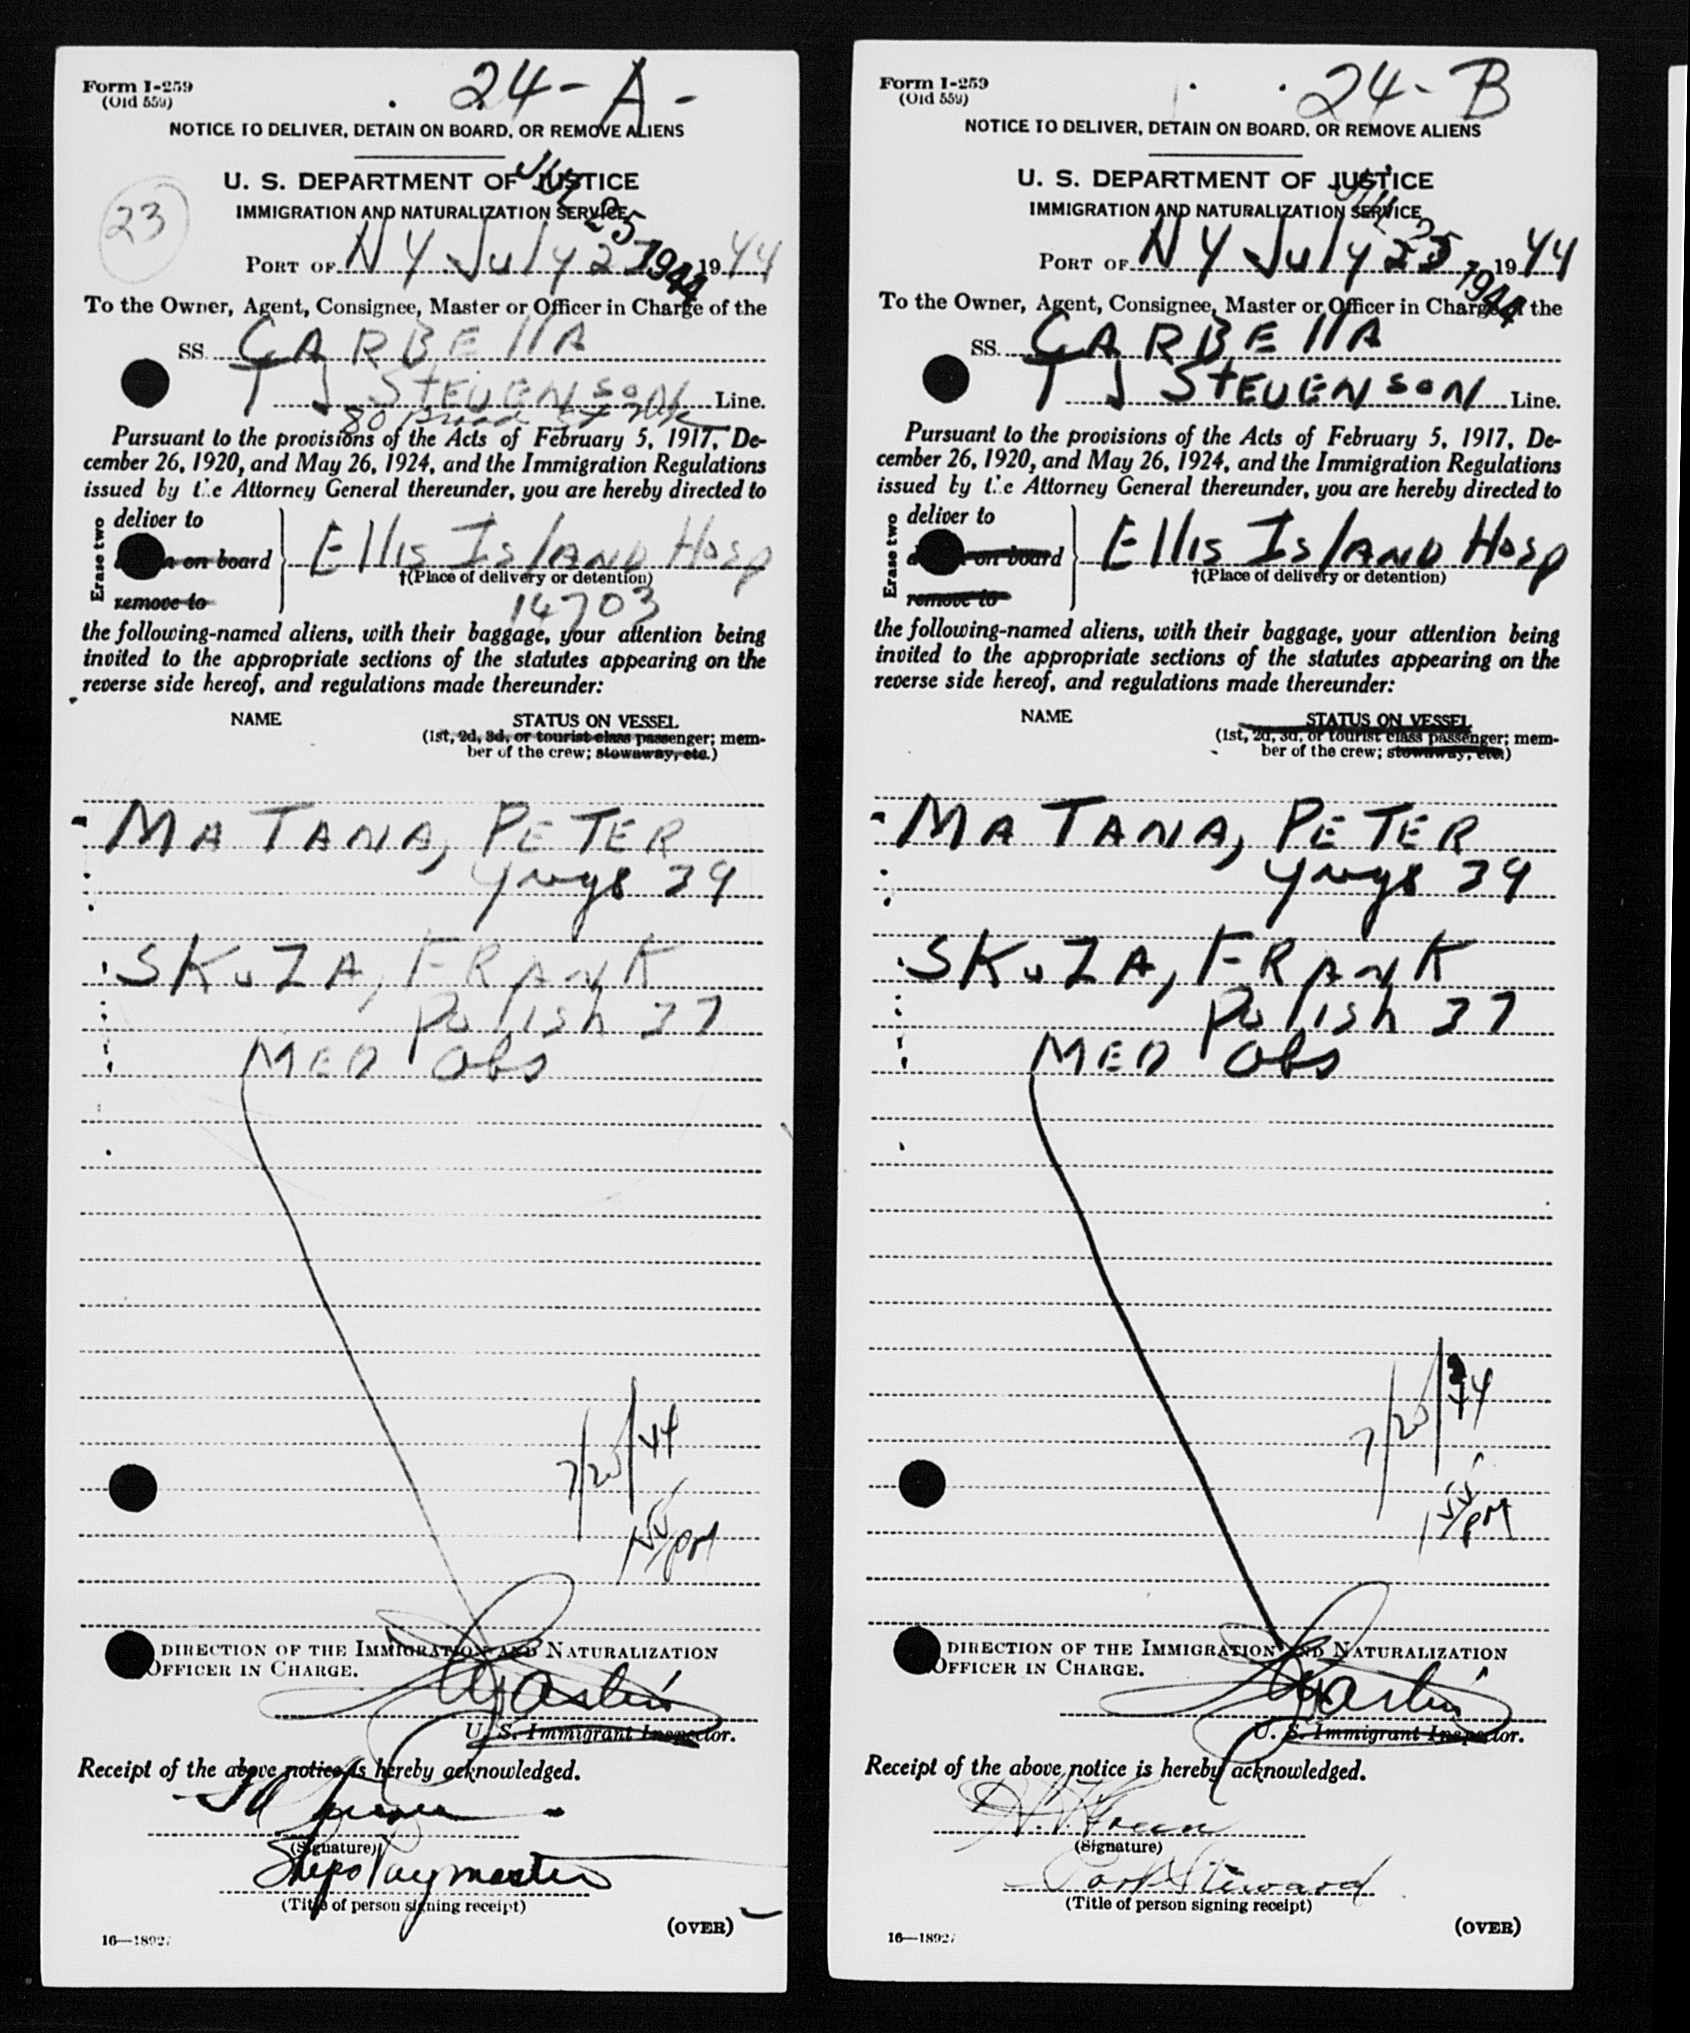 Form I-259
(Old 559)
24-A-
NOTICE TO DELIVER, DETAIN ON BOARD, OR REMOVE ALIENS
U. S. DEPARTMENT OF JUSTICE
IMMIGRATION AND NATURALIZATION SERVICE
23
JUL 25 1944
PORT OF NY July 25 1944
To the Owner, Agent, Consignee, Master or Officer in Charge of the
SS. GARBELLA
T J STEVENSON Line.
80 Broad St NYC
Pursuant to the provisions of the Acts of February 5, 1917, De-
cember 26, 1920, and May 26, 1924, and the Immigration Regulations
issued by the Attorney General thereunder, you are hereby directed to
Erase two
deliver to
on board
remove to
Ellis Island Hosp
†(Place of delivery or detention)
14703
the following-named aliens, with their baggage, your attention being
invited to the appropriate sections of the statutes appearing on the
reverse side hereof, and regulations made thereunder:
NAME STATUS ON VESSEL
(1st, 2d, 3d, or tourist class passenger; mem-
ber of the crew; stowaway, etc.)
MATANA, PETER
Yugs 39
SKUZA, FRANK
Polish 37
MED Obs
7/25/44
155/PM
DIRECTION OF THE IMMIGRATION AND NATURALIZATION
OFFICER IN CHARGE.
U. S. Immigrant Inspector.
Receipt of the above notice is hereby acknowledged.
(Signature)
Ships Paymaster
(Title of person signing receipt)
(OVER)
16—18927
Form I-259
(Old 559)
24-B
NOTICE TO DELIVER, DETAIN ON BOARD, OR REMOVE ALIENS
U. S. DEPARTMENT OF JUSTICE
IMMIGRATION AND NATURALIZATION SERVICE
JUL 25 1944
PORT OF NY July 25 1944
To the Owner, Agent, Consignee, Master or Officer in Charge of the
SS. GARBELLA
T J STEVENSON Line.
Pursuant to the provisions of the Acts of February 5, 1917, De-
cember 26, 1920, and May 26, 1924, and the Immigration Regulations
issued by the Attorney General thereunder, you are hereby directed to
Erase two
deliver to
on board
remove to
Ellis Island Hosp
†(Place of delivery or detention)
the following-named aliens, with their baggage, your attention being
invited to the appropriate sections of the statutes appearing on the
reverse side hereof, and regulations made thereunder:
NAME STATUS ON VESSEL
(1st, 2d, 3d, or tourist class passenger; mem-
ber of the crew; stowaway, etc.)
MATANA, PETER
Yugs 39
SKUZA, FRANK
Polish 37
MED Obs
7/25/44
155/PM
DIRECTION OF THE IMMIGRATION AND NATURALIZATION
OFFICER IN CHARGE.
U. S. Immigrant Inspector.
Receipt of the above notice is hereby acknowledged.
(Signature)
Port Steward
(Title of person signing receipt)
(OVER)
16—18927